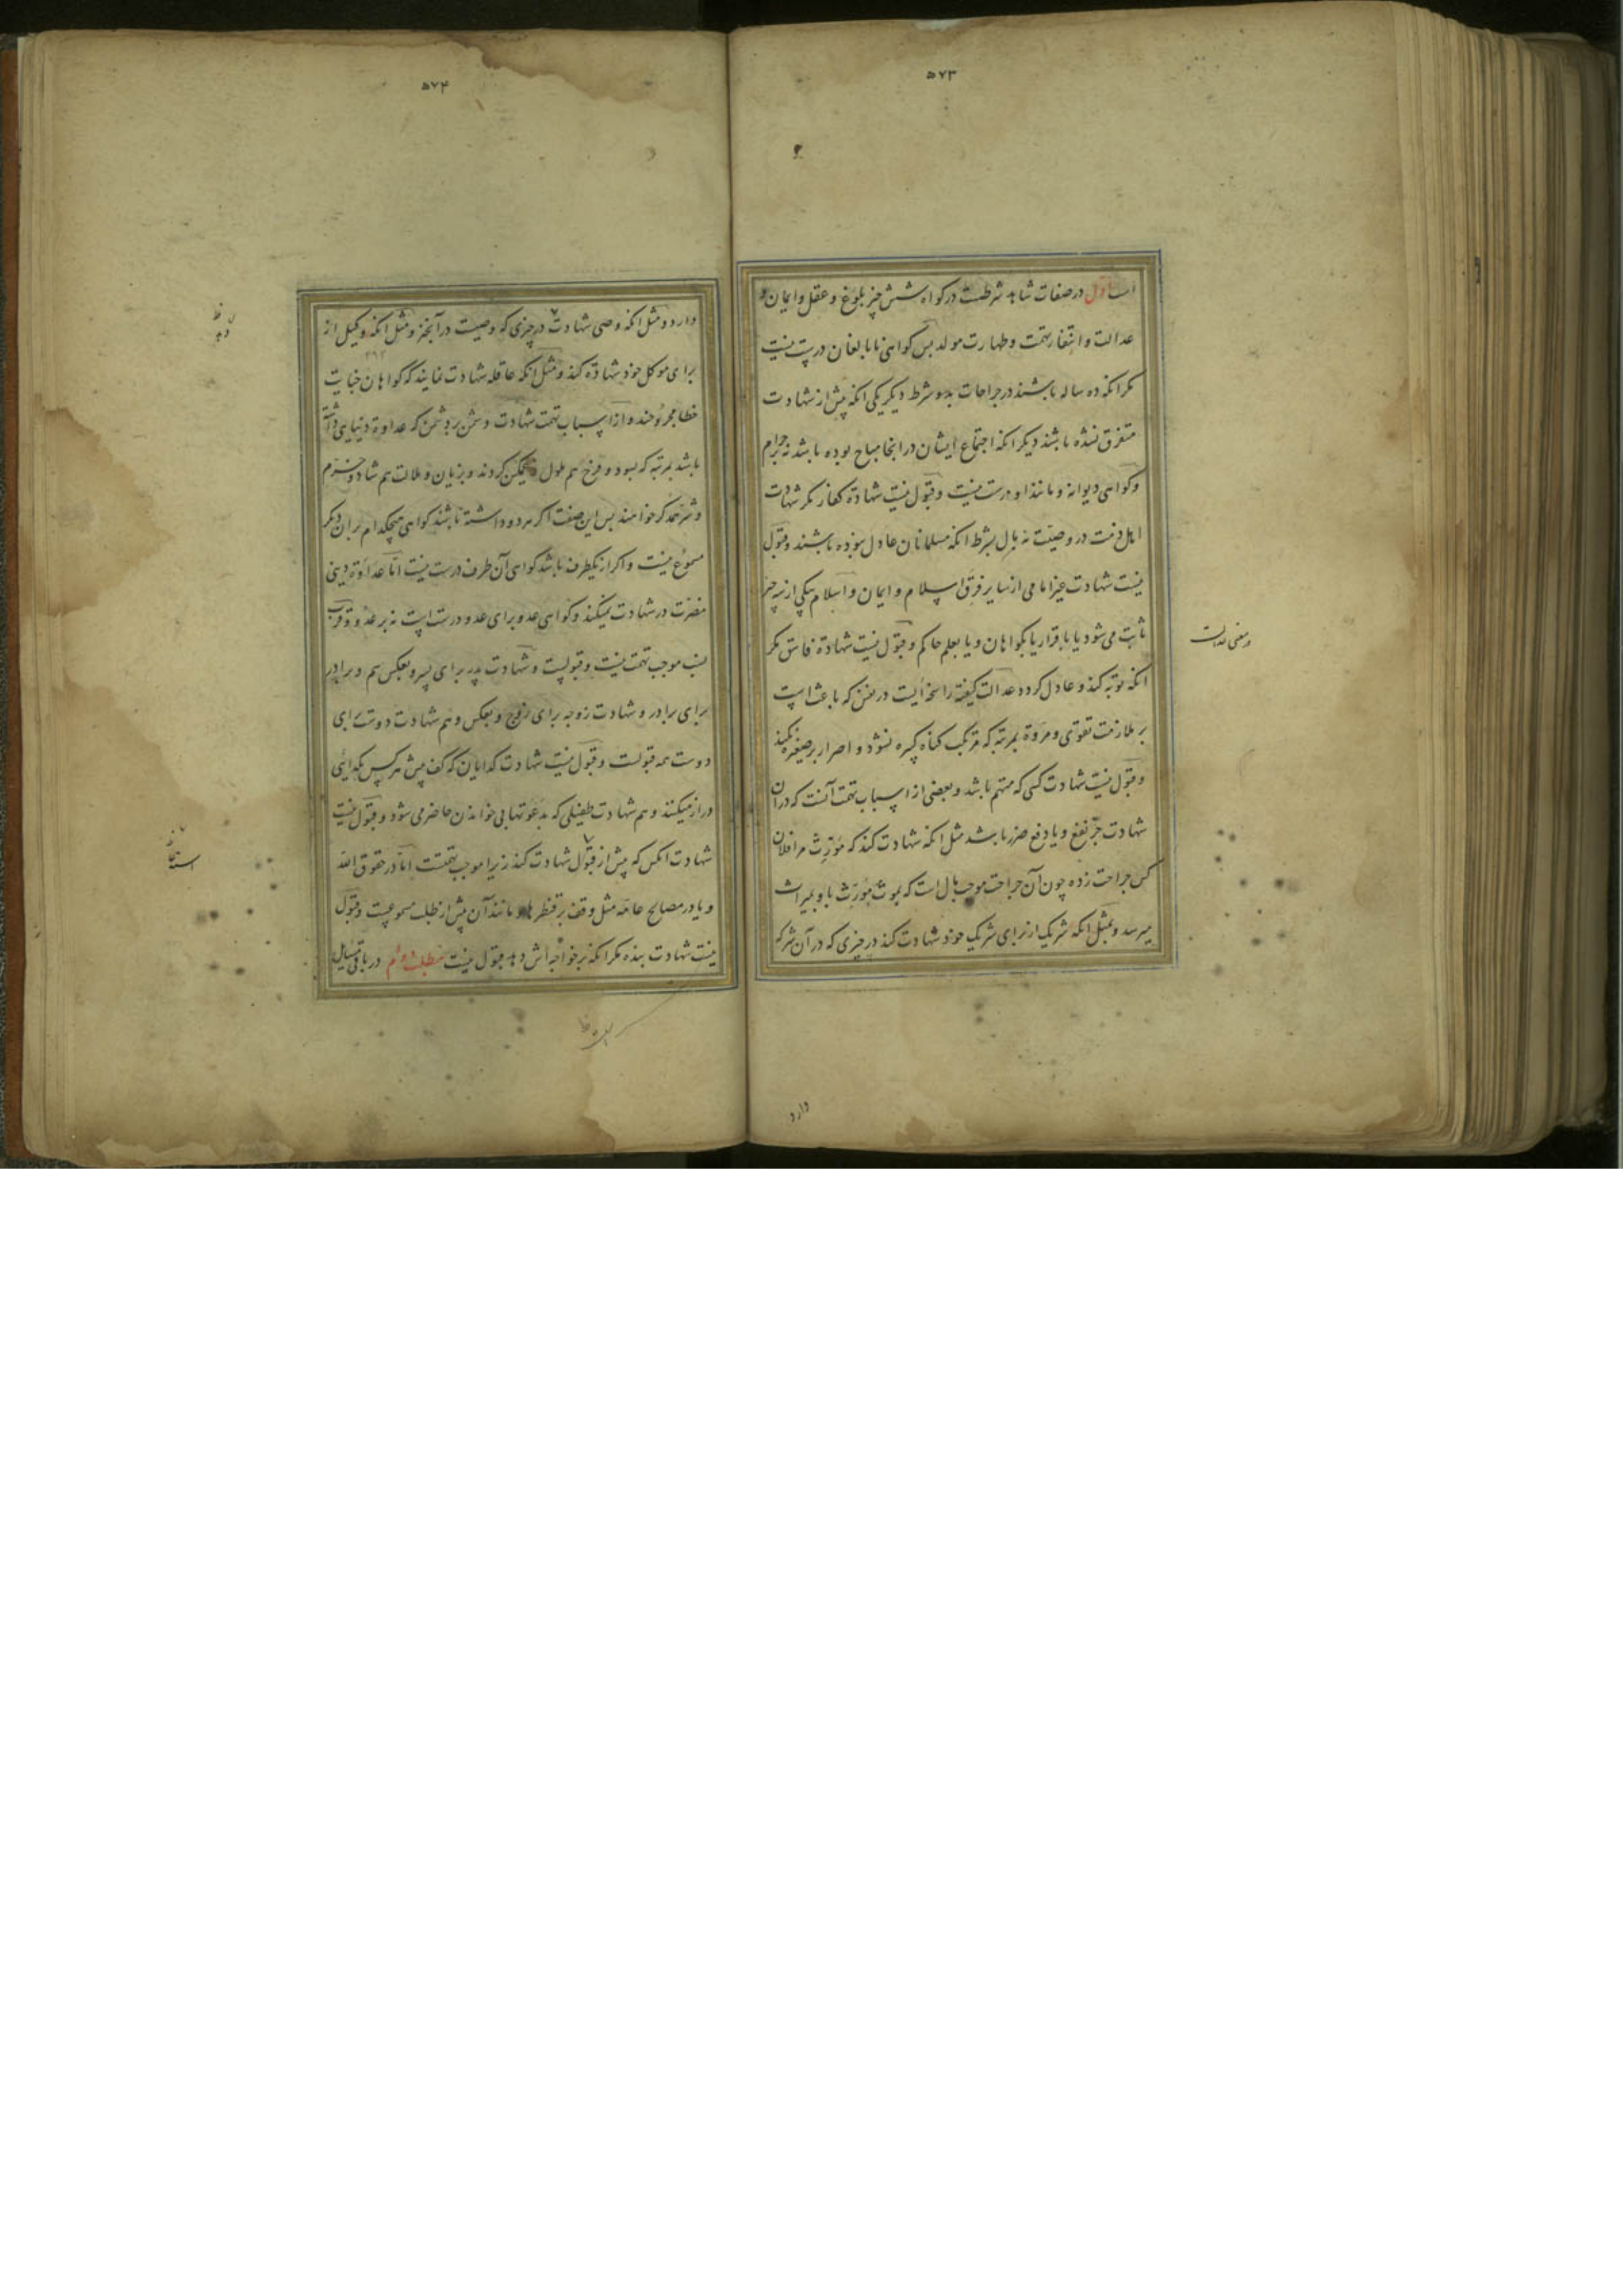 ۵۷۳
اول در صفات شاهد شرطست در گواه شش چیز بلوغ و عقل و ایمان و
عدالت و انتفاء تهمت و طهارت مولد بس کواهی نابالغان درست نیست
مکر انکه ده ساله باشند در جراحات بدو شرط دیکر یکی انکه پیش از شهادت
متفرق نشده باشند دیکر انکه اجتماع ایشان در انجا مباح بوده باشد نه حرام
و کواهی دیوانه و مانند او درست نیست و قبول نیست شهادة کفار مکر شهادت
اهل ذمت در وصیت نه بال بشرط انکه مسلمانان عادل نبوده باشند و قبول
نیست شهادت غیر امامی از سایر فرق اسلام و ایمان و اسلام بیکی از سه چیز
ثابت می شود یا باقرار یا بکواهان و یا بعلم حاکم و قبول نیست شهادة فاسق مکر
انکه توبه کند و عادل کردد عدالت کیفیة راسخه ایست در نفس که باعث است
بر ملازمت تقوی و مروة بمرتبه که مرتکب کناه کبیره نشود و اصرار بر صغیره نکند
و قبول نیست شهادت کسی که متهم باشد و بعضی از اسباب تهمت آنست که در ان
شهادت جر نفع و یا دفع ضرر باشد مثل انکه شهادت کند که مورث مرا فلان
کس جراحت زده چون آن جراحت موجب مال است که بموت مورث باو بمیراث
میرسد و مثل انکه شریک از برای شریک خود شهادت کند در چیزی که در آن شرکه
و معنی عدالت
دارد
۵۷۴
دارد و مثل انکه وصی شهادت در چیزی که وصیت در آنخیز و مثل انکه وکیل از
برای موکل خود شهادة کند و مثل انکه عاقله شهادت نمایند که کواهان جنایت
خطا مجروحند و از اسباب تهمت شهادت دشمن بر دشمن که عداوة دنیایی داشته
باشد بمرتبه که بسود و فرح هم ملول و غمکین کردند و بزیان و ملالت هم شاد و خرم
و شر همدکر خواهند بس این صفت اکر هر دو داشته باشند کواهی هیچکدام بر ان دیکر
مسموع نیست و اکر از یکطرف باشد کواهی آن طرف درست نیست اما عداوة دینی
مضرت در شهادت نمیکند و کواهی عدو برای عدو درست است نه بر عدو و قرب
نسب موجب تهمت نیست و قبولست و شهادت پدر برای پسر و بعکس هم و برادر
برای برادر و شهادت زوجه برای زوج و بعکس و هم شهادت دوست برای
دوست همه قبولست و قبول نیست شهادت کدایان که کف پیش هر کس بکدایی
دراز میکنند و هم شهادت طفیلی که بدعوتها بی خواندن حاضر می شود و قبول نیست
شهادت انکس که پیش از قبول شهادت کند زیرا موجب تهمتست اما در حقوق الله
و یا در مصالح عامه مثل وقف بر قنطرها و مانند آن پیش از طلب مسموعست و قبول
نیست شهادت بنده مکر انکه بر خواجه اش دهد قبول نیست مطلب دوم در باقی مسایل